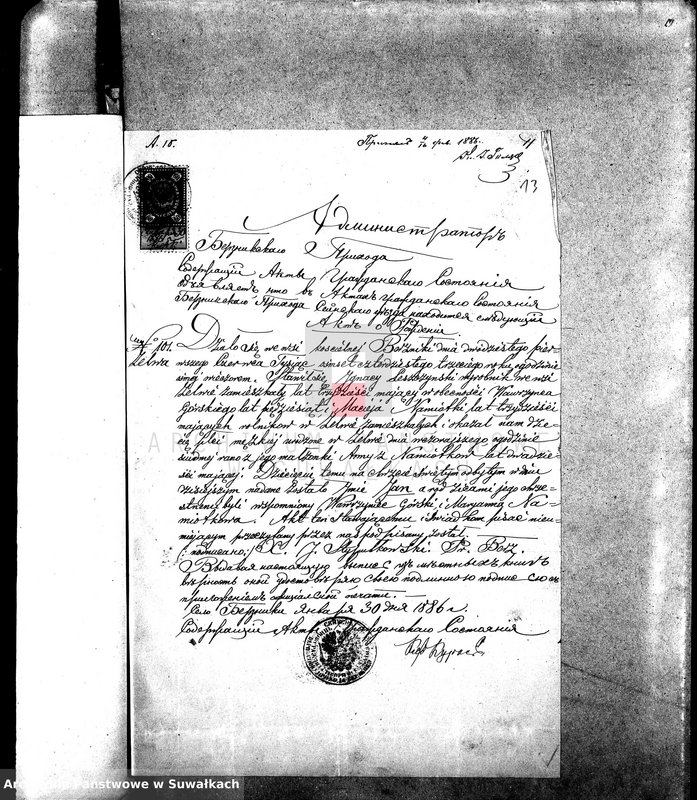 А. 10.
1886.
13
Администраторъ
Берникскаго Прихода
Содержащій Акты Гражданскаго Состоянія
объявляетъ что въ Актахъ Гражданскаго Состоянія
Берникскаго Прихода Сейнскаго уѣзда находится слѣдующій
Актъ о Рожденіи.
№ 101.
Zelwa
Działo się we wsi kościelnéj Berżniki dnia dwudziestego pier-
wszego Czerwca Tysiąc ośmset czterdziestego trzeciego roku, o godzinie
wieczorem. Stawił się Ignacy Leszczynski wyrobnik we wsi
Zelwie zamieszkały lat trzydzieści mający w obecności Wawrzynca
Górskiego lat pięćdziesiąt i Macieja Namiotki lat trzydzieści
mających rolników w Zelwie zamieszkałych i okazał nam dzie-
cię płci męzkiej urodzone w Zelwie dnia wczorajszego o godzinie
siódmej rano z jego małżonki Anny z Namiotków lat dwadzie-
ścia mającej. Dziecięciu temu na chrzcie świętym odbytym w dniu
dzisiejszym nadane zostało Imie Jan a rodzicami jego chrze-
stnemi byli wspomniony Wawrzyniec Górski i Maryanna Na-
miotkowa. Akt ten stawającemu i świadkom pisać nieu-
miejącym przeczytany przez nas podpisany został.
(podpisano:) X. J. Pr. Berż.
Выдавая настоящую выпись изъ книгъ
вѣрность оной удостовѣряю своею подписью съ
приложеніемъ печати.
Село Берники Января 30 дня 1886 г.
Содержащій Акты Гражданскаго Состоянія
Archiwum Państwowe w Suwałkach